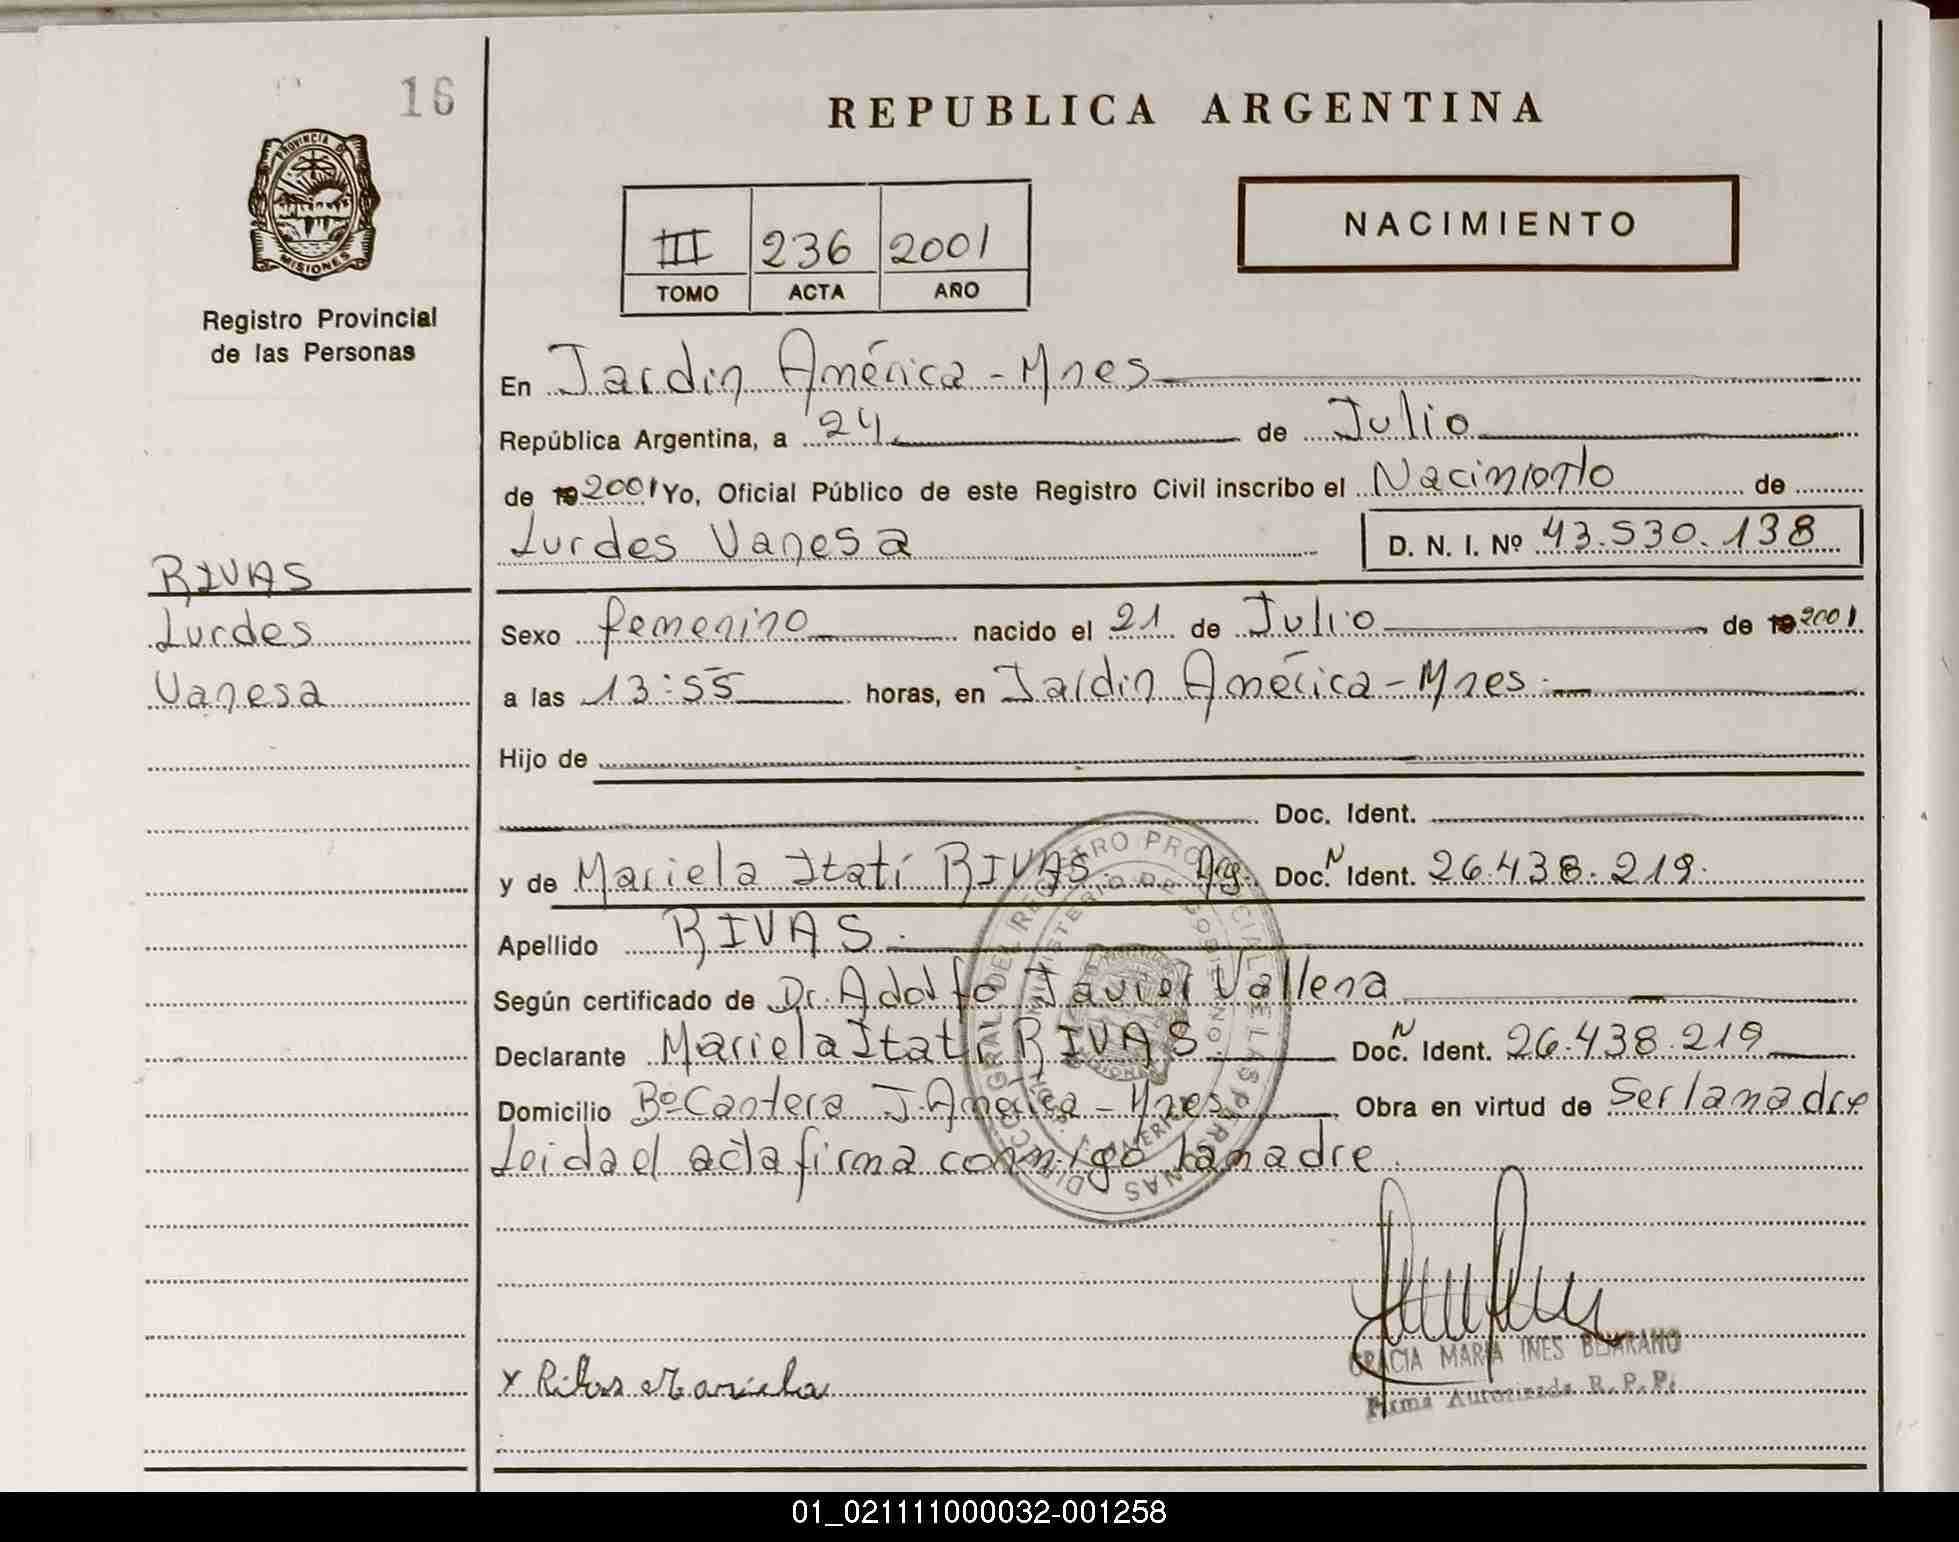 16
REPUBLICA ARGENTINA
PROVINCIA DE
MISIONES
Registro Provincial
de las Personas
NACIMIENTO
III 236 2001
TOMO ACTA AÑO
En Jardín América - Mnes
República Argentina, a 24 de Julio
de 19 2001 Yo, Oficial Público de este Registro Civil inscribo el Nacimiento de
Lurdes Vanesa D. N. I. Nº 43.530.138
RIVAS
Lurdes
Vanesa
Sexo femenino nacido el 21 de Julio de 19 2001
a las 13:55 horas, en Jardín América - Mnes.
Hijo de
Doc. Ident.
y de Mariela Itatí RIVAS Arg. Doc. N Ident. 26.438.219.
Apellido RIVAS.
Según certificado de Dr. Adolfo Javier Vallena
Declarante Mariela Itatí RIVAS Doc. N Ident. 26.438.219
Domicilio Bº Cantera J. América - Mnes. Obra en virtud de Ser la madre
Leida el acta firma conmigo la madre
DIRECC. GRAL. DEL REGISTRO PROVINCIAL DE LAS PERSONAS
MINISTERIO DE GOBIERNO
x Ribas Mariela
GRACIA MARIA INES BEJARANO
Firma Autorizada R.P.P.
01_021111000032-001258